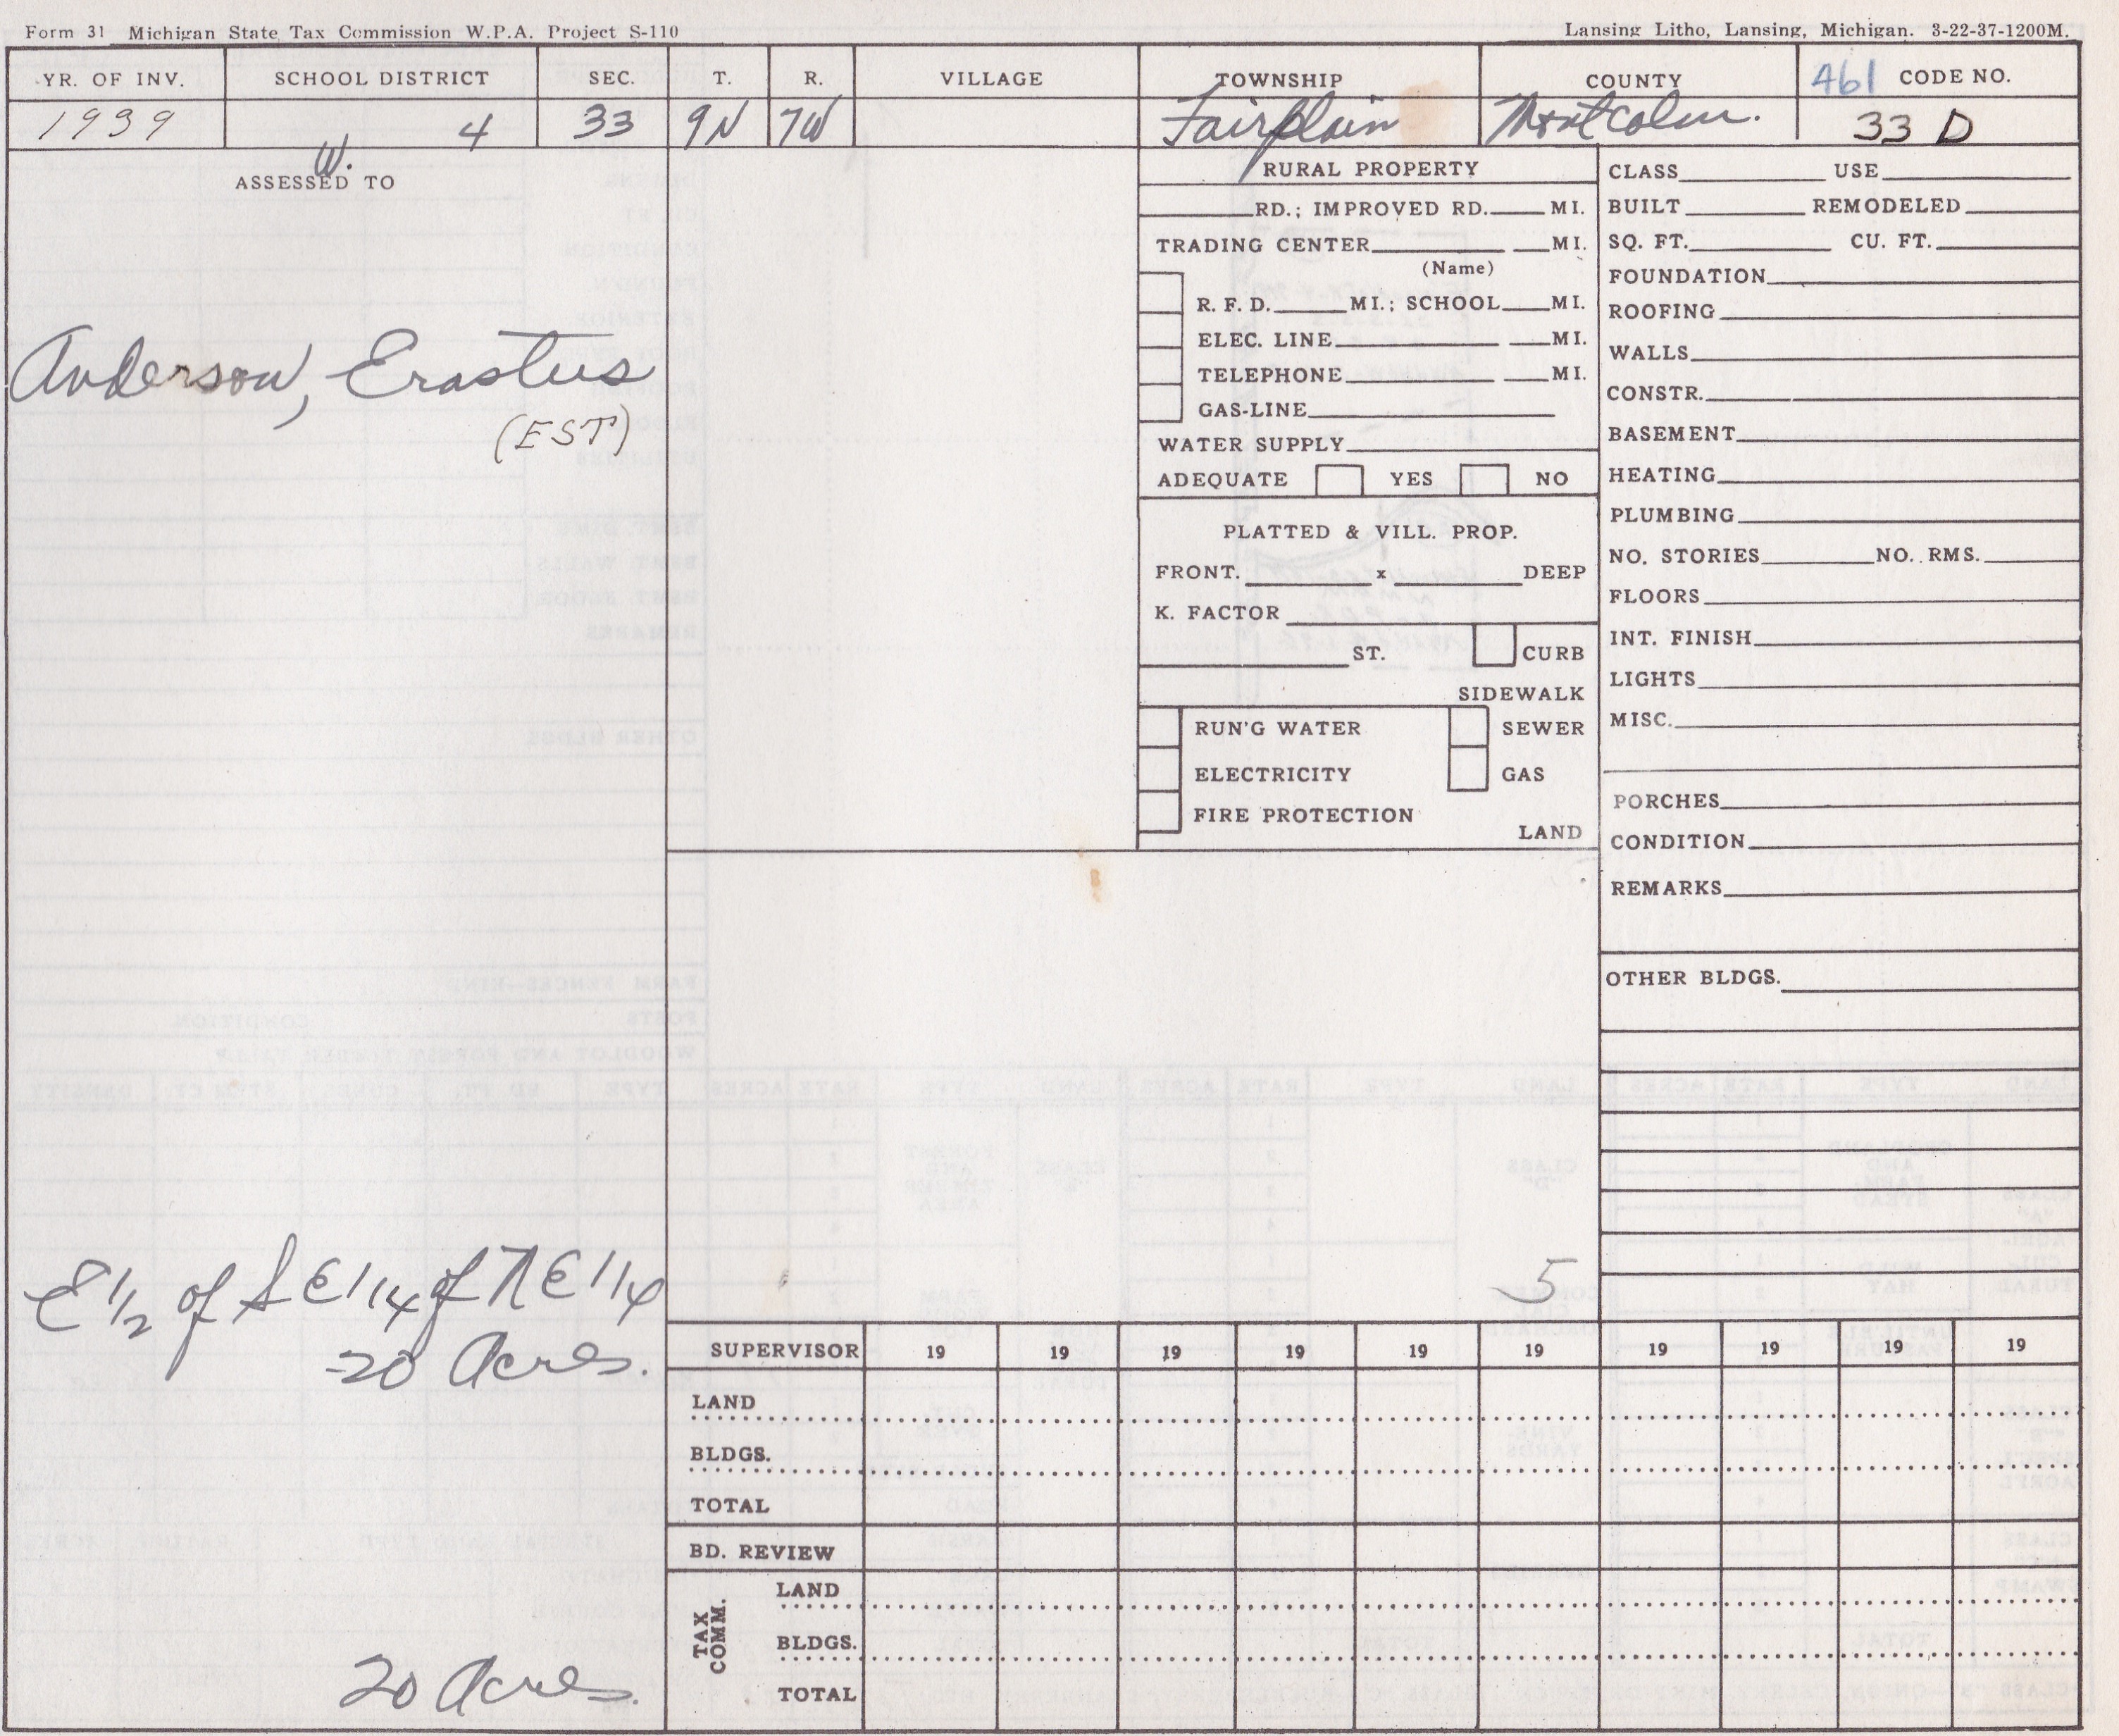 Form 31 Michigan State Tax Commission W.P.A. Project S-110
Lansing Litho, Lansing, Michigan. 3-22-37-1200M.
YR. OF INV. SCHOOL DISTRICT SEC. T. R. VILLAGE TOWNSHIP COUNTY 461 CODE NO.
1939 4 33 9N 7W Fairplain Montcalm. 33 D
W.
ASSESSED TO
Anderson, Erastus
(EST)
E 1/2 of S E 1/4 of N E 1/4
20 Acres.
20 Acres.
RURAL PROPERTY
RD.; IMPROVED RD. MI.
TRADING CENTER MI.
(Name)
R. F. D. MI.; SCHOOL MI.
ELEC. LINE MI.
TELEPHONE MI.
GAS-LINE
WATER SUPPLY
ADEQUATE YES NO
PLATTED & VILL. PROP.
FRONT. x DEEP
K. FACTOR
ST. CURB
SIDEWALK
RUN'G WATER SEWER
ELECTRICITY GAS
FIRE PROTECTION
LAND
5
CLASS USE
BUILT REMODELED
SQ. FT. CU. FT.
FOUNDATION
ROOFING
WALLS
CONSTR.
BASEMENT
HEATING
PLUMBING
NO. STORIES NO. RMS.
FLOORS
INT. FINISH
LIGHTS
MISC.
PORCHES
CONDITION
REMARKS
OTHER BLDGS.
SUPERVISOR 19 19 19 19 19 19 19 19 19 19
LAND
BLDGS.
TOTAL
BD. REVIEW
TAX COMM.
LAND
BLDGS.
TOTAL